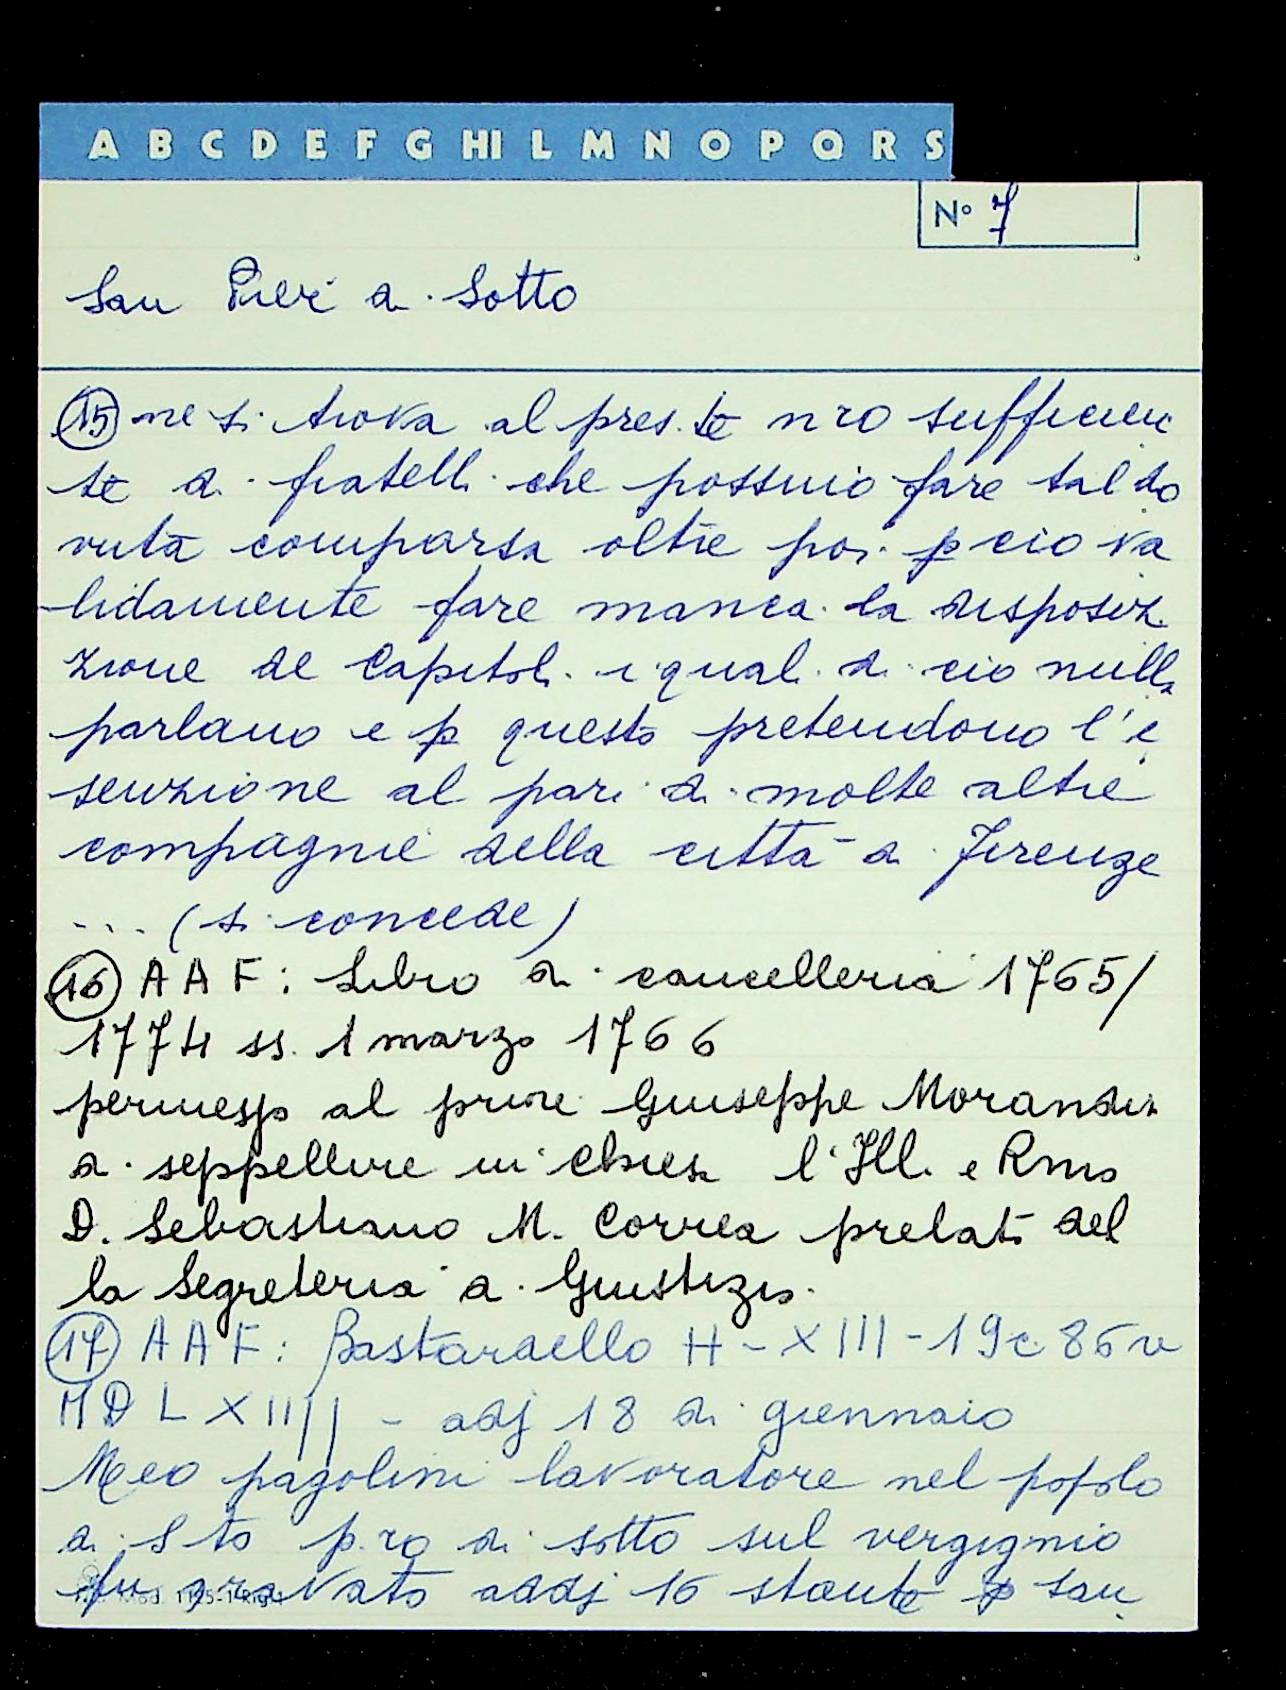 A B C D E F G HI L M N O P Q R S
N° 7
San Pier di Sotto
15 ne si trova al pres.te nro sufficien
te di fratelli che possino fare tal do
vuta comparsa oltre poi p cio va
lidamente fare manca la disposiz
zione de Capitoli i quali di cio nulla
parlano e p questo pretendono l'e
senzione al pari di molte altre
compagnie della città di Firenze
... (si concede)
16 A A F: Libro di cancelleria 1765/
1774 ss. 1 marzo 1766
permesso al priore Giuseppe Morandi
di seppellire in chiesa l'Ill. e Rmo
D. Sebastiano M. Correa prelato del
la Segreteria di Giustizia.
17 A A F: Bastardello H - XIII - 19 c 86 v
M D L X IIII - adj 18 di giennaio
Meo pagolini lavoratore nel popolo
di Sto p.ro di sotto sul vergignio
fu gravato addj 16 stante p san